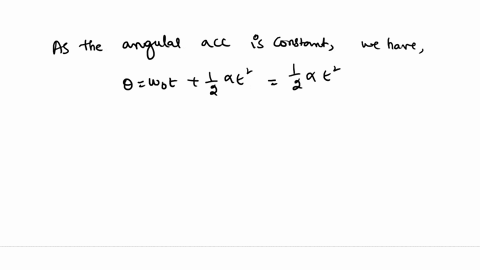 As the angular acc is constant, we have,
θ = ω₀t + 1/2 αt² = 1/2 αt²